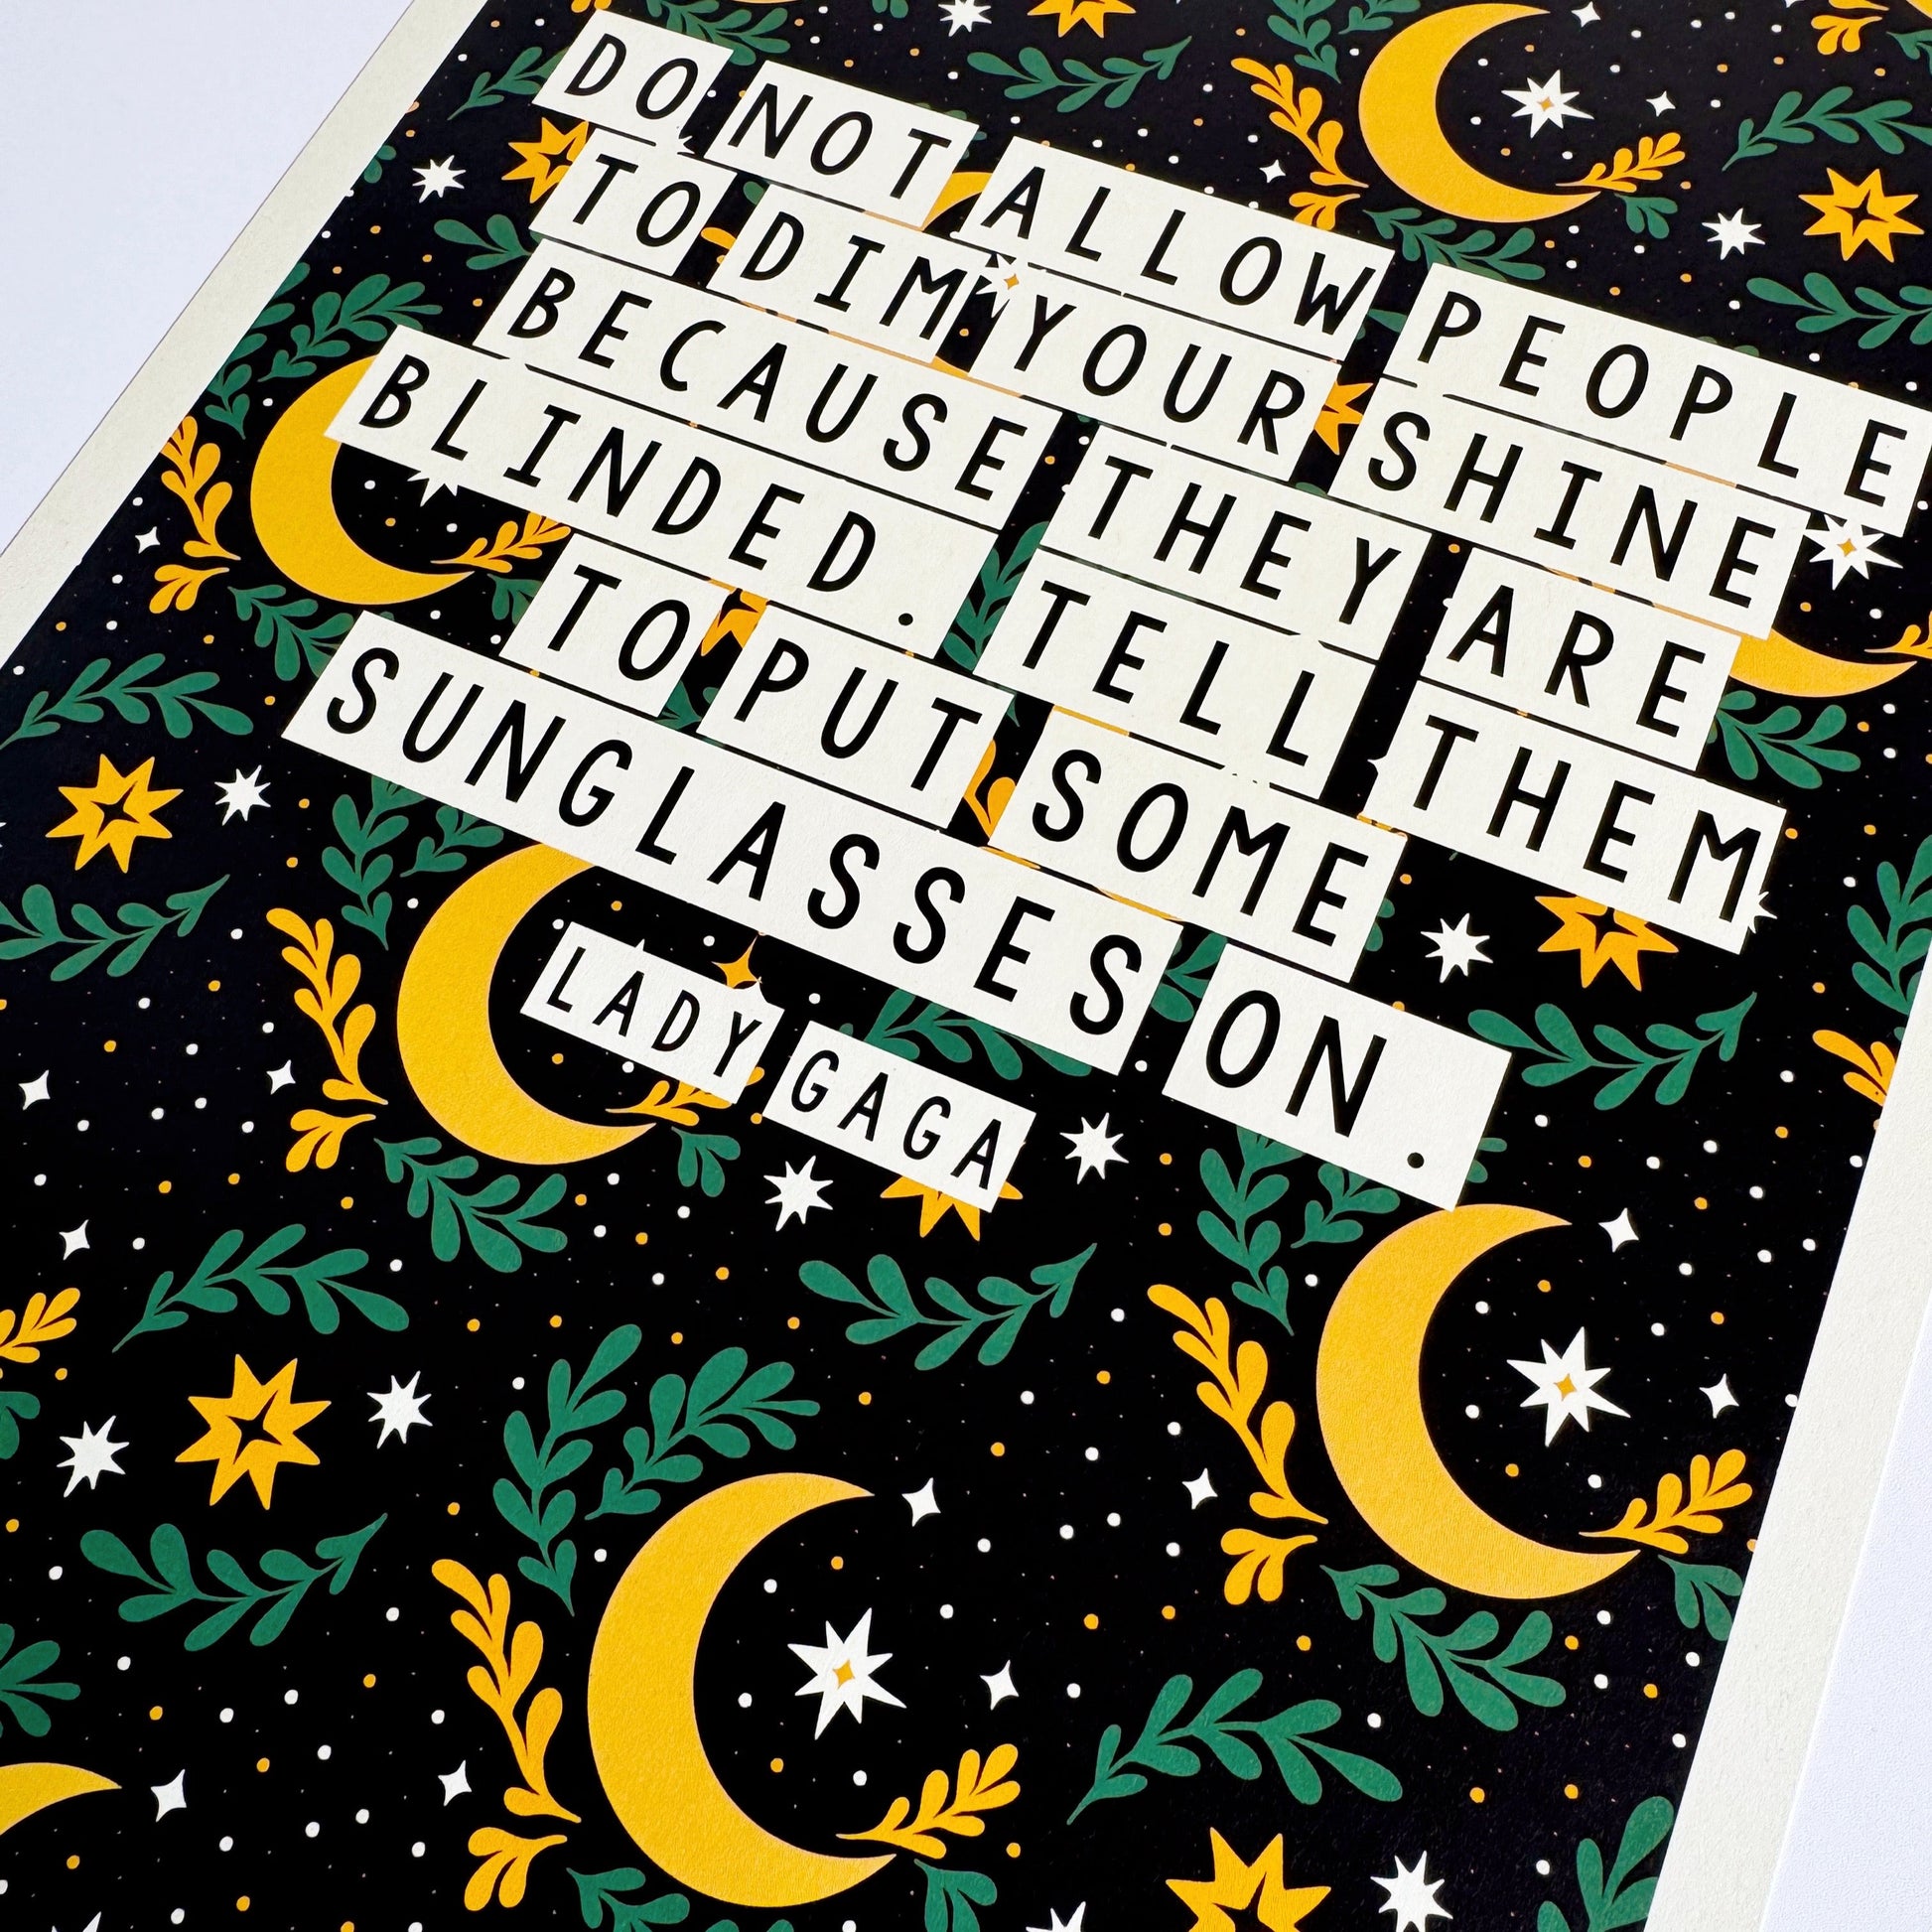 DO NOT ALLOW PEOPLE
TO DIM YOUR SHINE
BECAUSE THEY ARE
BLINDED. TELL THEM
TO PUT SOME
SUNGLASSES ON.
LADY GAGA